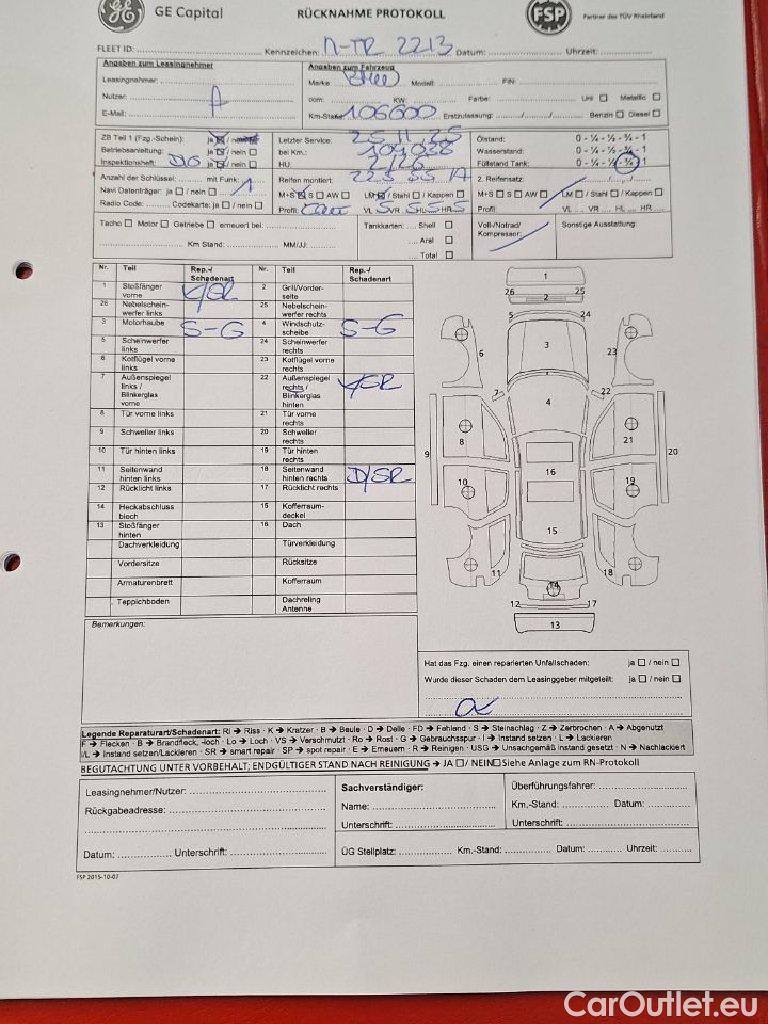 GE Capital RÜCKNAHME PROTOKOLL FSP Partner des TÜV Rheinland
FLEET ID: Kennzeichen: N-TR 2213 Datum: Uhrzeit:
Angaben zum Leasingnehmer Angaben zum Fahrzeug
Leasingnehmer: Marke: Modell: FIN:
Nutzer: KW: Farbe: Uni Metallic
E-Mail: Km-Stand: 106600 Erstzulassung: Benzin Diesel
ZB Teil 1 (Fzg.-Schein): ja / nein Letzter Service: 25.11.25 Ölstand: 0 - ¼ - ½ - ¾ - 1
Betriebsanleitung: ja / nein bei Km.: Wasserstand: 0 - ¼ - ½ - ¾ - 1
Inspektionsheft: ja / nein HU: 2/26 Füllstand Tank: 0 - ¼ - ½ - ¾ - 1
Anzahl der Schlüssel: mit Funk: 1 Reifen montiert: 225 55 17 2. Reifensatz:
Navi Datenträger: ja / nein M+S S AW LM / Stahl / Kappen M+S S AW LM / Stahl / Kappen
Radio Code: Codekarte: ja / nein Profil: VL 5 VR 5 HL 5 HR 5 Profil: VL VR HL HR
Tacho Motor Getriebe erneuert bei: Tankkarten: Shell Voll-/Notrad/ Sonstige Ausstattung:
Aral Kompressor:
Km Stand: MM/JJ: Total
Nr. Teil Rep.-/ Schadenart Nr. Teil Rep.-/ Schadenart
1 Stoßfänger vorne K/SR 2 Grill/Vorderseite
26 Nebelscheinwerfer links 25 Nebelscheinwerfer rechts
3 Motorhaube S-G 4 Windschutzscheibe S-G
5 Scheinwerfer links 24 Scheinwerfer rechts
6 Kotflügel vorne links 23 Kotflügel vorne rechts
7 Außenspiegel links / Blinkerglas vorne 22 Außenspiegel rechts / Blinkerglas hinten K/SR
8 Tür vorne links 21 Tür vorne rechts
9 Schweller links 20 Schweller rechts
10 Tür hinten links 19 Tür hinten rechts
11 Seitenwand hinten links 18 Seitenwand hinten rechts D/SR
12 Rücklicht links 17 Rücklicht rechts
14 Heckabschluss blech 15 Kofferraumdeckel
13 Stoßfänger hinten 16 Dach
Dachverkleidung Türverkleidung
Vordersitze Rücksitze
Armaturenbrett Kofferraum
Teppichboden Dachreling Antenne
1
26 25
2
5 24
6 3 23
7 22
4
8 21
9 20
10 16 19
15
11 14 18
12 17
13
Bemerkungen:
Hat das Fzg. einen reparierten Unfallschaden: ja / nein
Wurde dieser Schaden dem Leasinggeber mitgeteilt: ja / nein
Legende Reparaturart/Schadenart: RI → Riss - K → Kratzer - B → Beule - D → Delle - FD → Fehlend - S → Steinschlag - Z → Zerbrochen - A → Abgenutzt
F → Flecken - B → Brandfleck, -loch - Lo → Loch - VS → Verschmutzt - Ro → Rost - G → Gebrauchsspur - I → Instand setzen - L → Lackieren
I/L → Instand setzen/Lackieren - SR → smart repair - SP → spot repair - E → Erneuern - R → Reinigen - USG → Unsachgemäß instand gesetzt - N → Nachlackiert
BEGUTACHTUNG UNTER VORBEHALT; ENDGÜLTIGER STAND NACH REINIGUNG → JA / NEIN Siehe Anlage zum IRN-Protokoll
Leasingnehmer/Nutzer: Sachverständiger: Überführungsfahrer:
Rückgabeadresse: Name: Km.-Stand: Datum:
Unterschrift: Unterschrift:
Datum: Unterschrift: ÜG Stellplatz: Km.-Stand: Datum: Uhrzeit:
FSP 2015-10-07
CarOutlet.eu